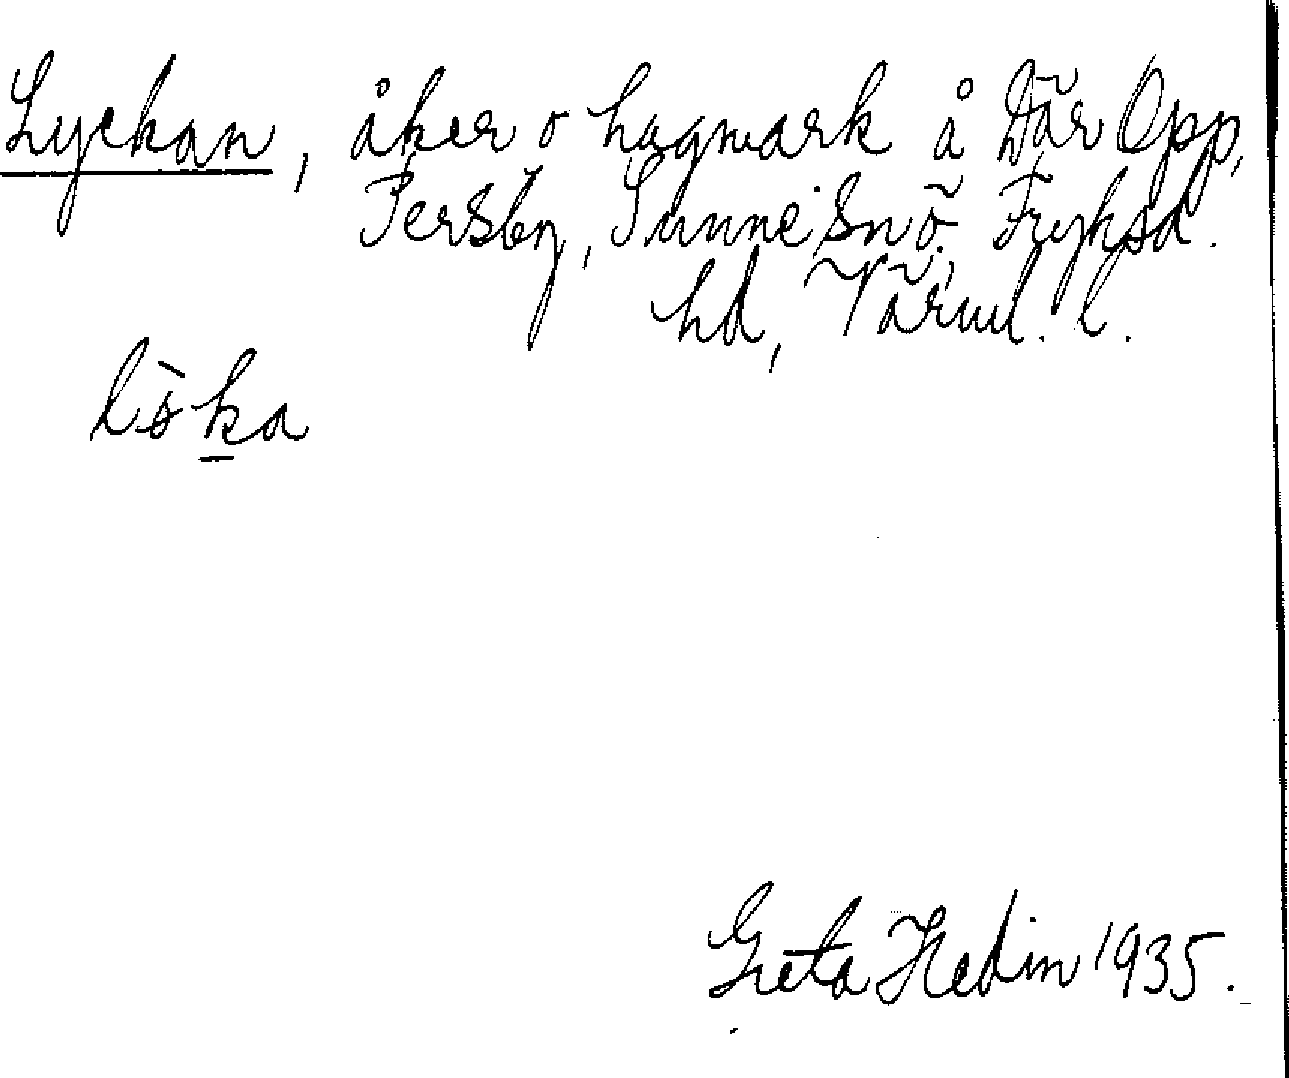 Lyckan, åker o hagmark å Där Opp,
Persby, Sunne snö. Fryksd.
hd, Värml. l.
lö̀ka
Greta Hedin 1935.